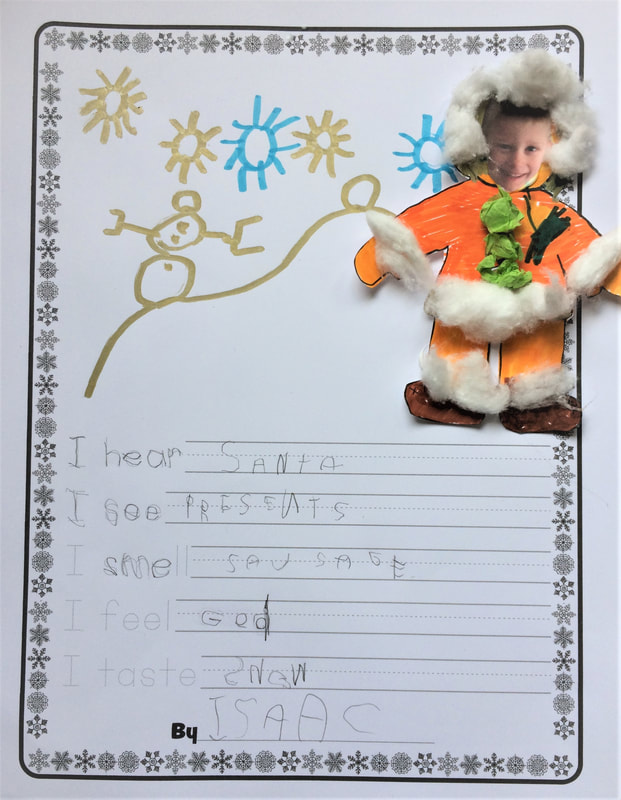 I hear SANTA
I see PRESENTS
I smell SAUSAGE
I feel GOD
I taste SNOW
By ISAAC